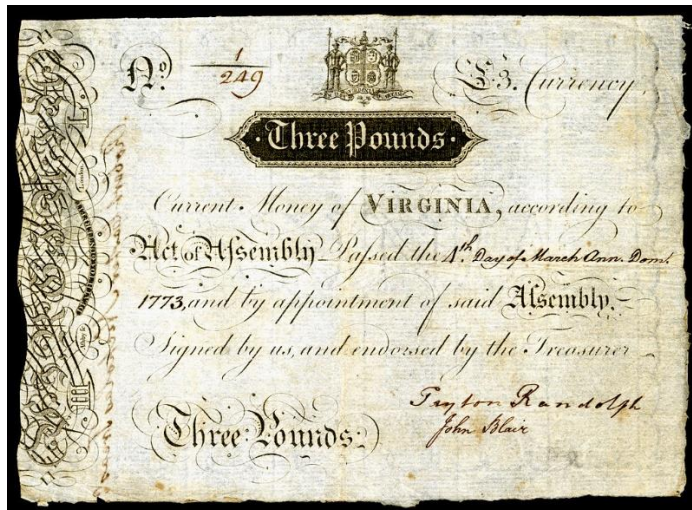 No. 1/249 £3. Currency
Three Pounds
Current Money of VIRGINIA, according to
Act of Assembly Passed the 4th. Day of March Ann. Dom.
1773, and by appointment of said Assembly.
Signed by us, and endorsed by the Treasurer
Three Pounds
Peyton Randolph
John Blair